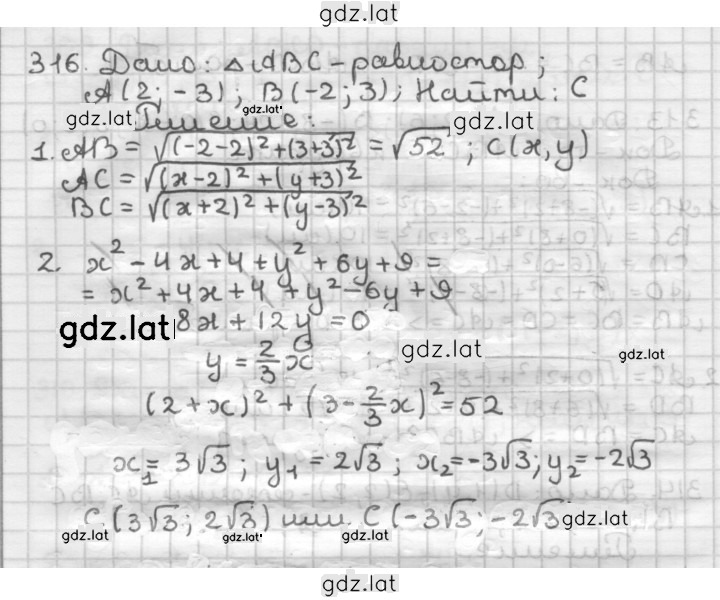 gdz.lat
316. Дано: △ABC - равностор;
A(2; -3); B(-2; 3); Найти: C
gdz.lat Решение: gdz.lat gdz.lat
1. AB = √((-2-2)² + (3+3)²) = √52; C(x, y)
AC = √((x-2)² + (y+3)²)
BC = √((x+2)² + (y-3)²)
2. x² - 4x + 4 + y² + 6y + 9 =
= x² + 4x + 4 + y² - 6y + 9
gdz.lat 8x + 12y = 0
y = 2/3 x gdz.lat gdz.lat
(2+x)² + (3 - 2/3 x)² = 52
x₁ = 3√3; y₁ = 2√3; x₂ = -3√3; y₂ = -2√3
C(3√3; 2√3) или C(-3√3; -2√3 gdz.lat
gdz.lat gdz.lat gdz.lat
gdz.lat